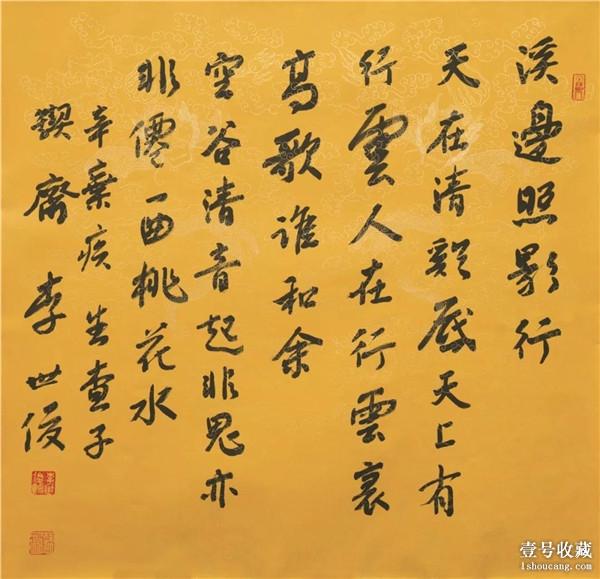 溪邊照影行
天在清谿底天上有
行雲人在行雲裏
高歌誰和余
空谷清音起非鬼亦
非僊一曲桃花水
辛棄疾生查子
鍥齋李世俊
壹号收藏
1shoucang.com